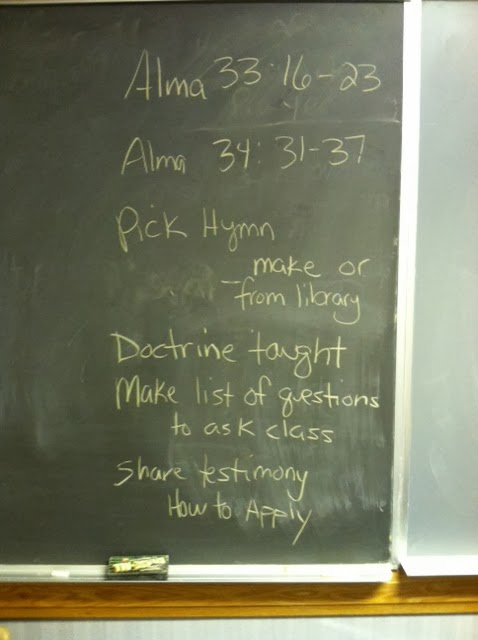 Alma 33:16-23
Alma 34:31-37
Pick Hymn
- make or
from library
Doctrine taught
Make list of questions
to ask class
Share testimony
How to Apply